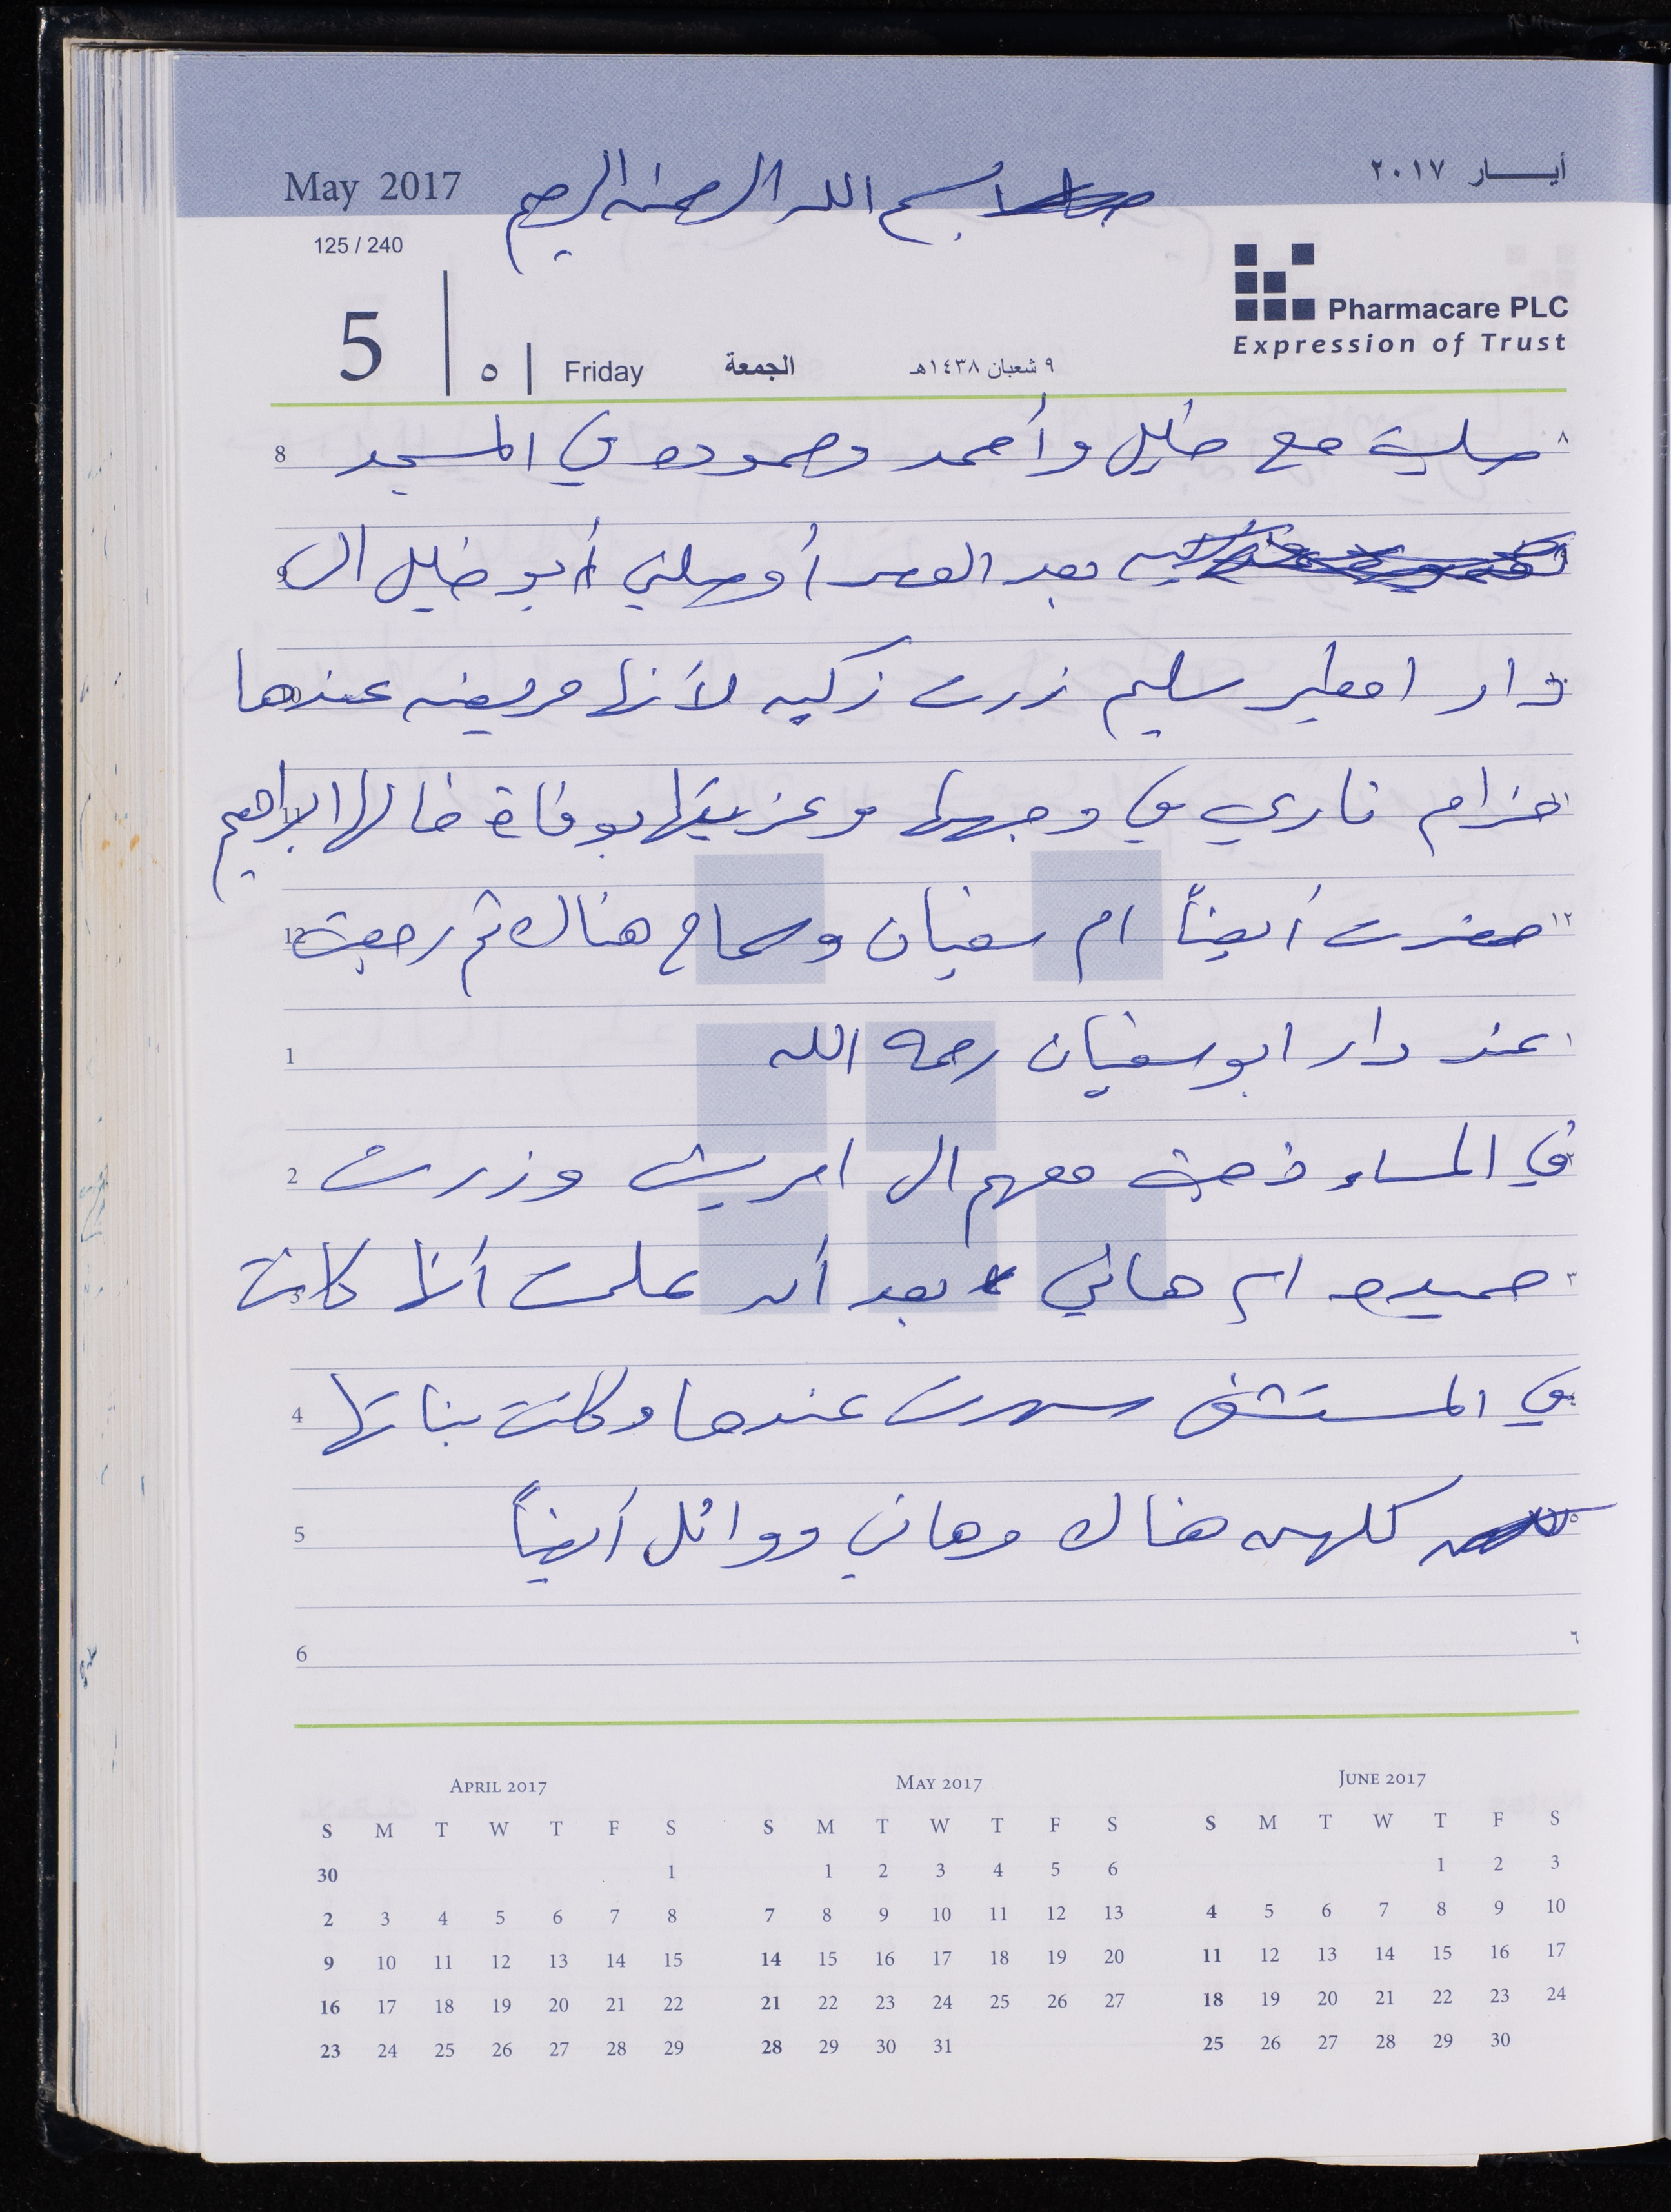 May 2017 بسم الله الرحمن الرحيم أيـــار ٢٠١٧
125 / 240
Pharmacare PLC
Expression of Trust
5 ٥ Friday الجمعة ٩ شعبان ١٤٣٨هـ
8 صليت مع خليل وأحمد وحموده في المسجد ٨
بعد العصر أوصلني أبو خليل الى
دار امطير سليم زرت زكيه لأنها مريضه عندها
حزام ناري في وجهها وعزيتها بوفاة خالها ابراهيم
12 حضرت أيضاً ام سفيان وسماح هناك ثم رجعت ١٢
1 عند دار ابو سفيان رحمه الله ١
2 في المساء ذهبت معهم الى امريش وزرت
3 حميده ام هاني بعد أن علمت أنها كانت ٣
4 في المستشفى سهرت عندها وكانت بناتها
5 كلهن هناك وهاني ووائل أيضاً ٥
6 ٦
April 2017
S M T W T F S
30 1
2 3 4 5 6 7 8
9 10 11 12 13 14 15
16 17 18 19 20 21 22
23 24 25 26 27 28 29
May 2017
S M T W T F S
1 2 3 4 5 6
7 8 9 10 11 12 13
14 15 16 17 18 19 20
21 22 23 24 25 26 27
28 29 30 31
June 2017
S M T W T F S
1 2 3
4 5 6 7 8 9 10
11 12 13 14 15 16 17
18 19 20 21 22 23 24
25 26 27 28 29 30